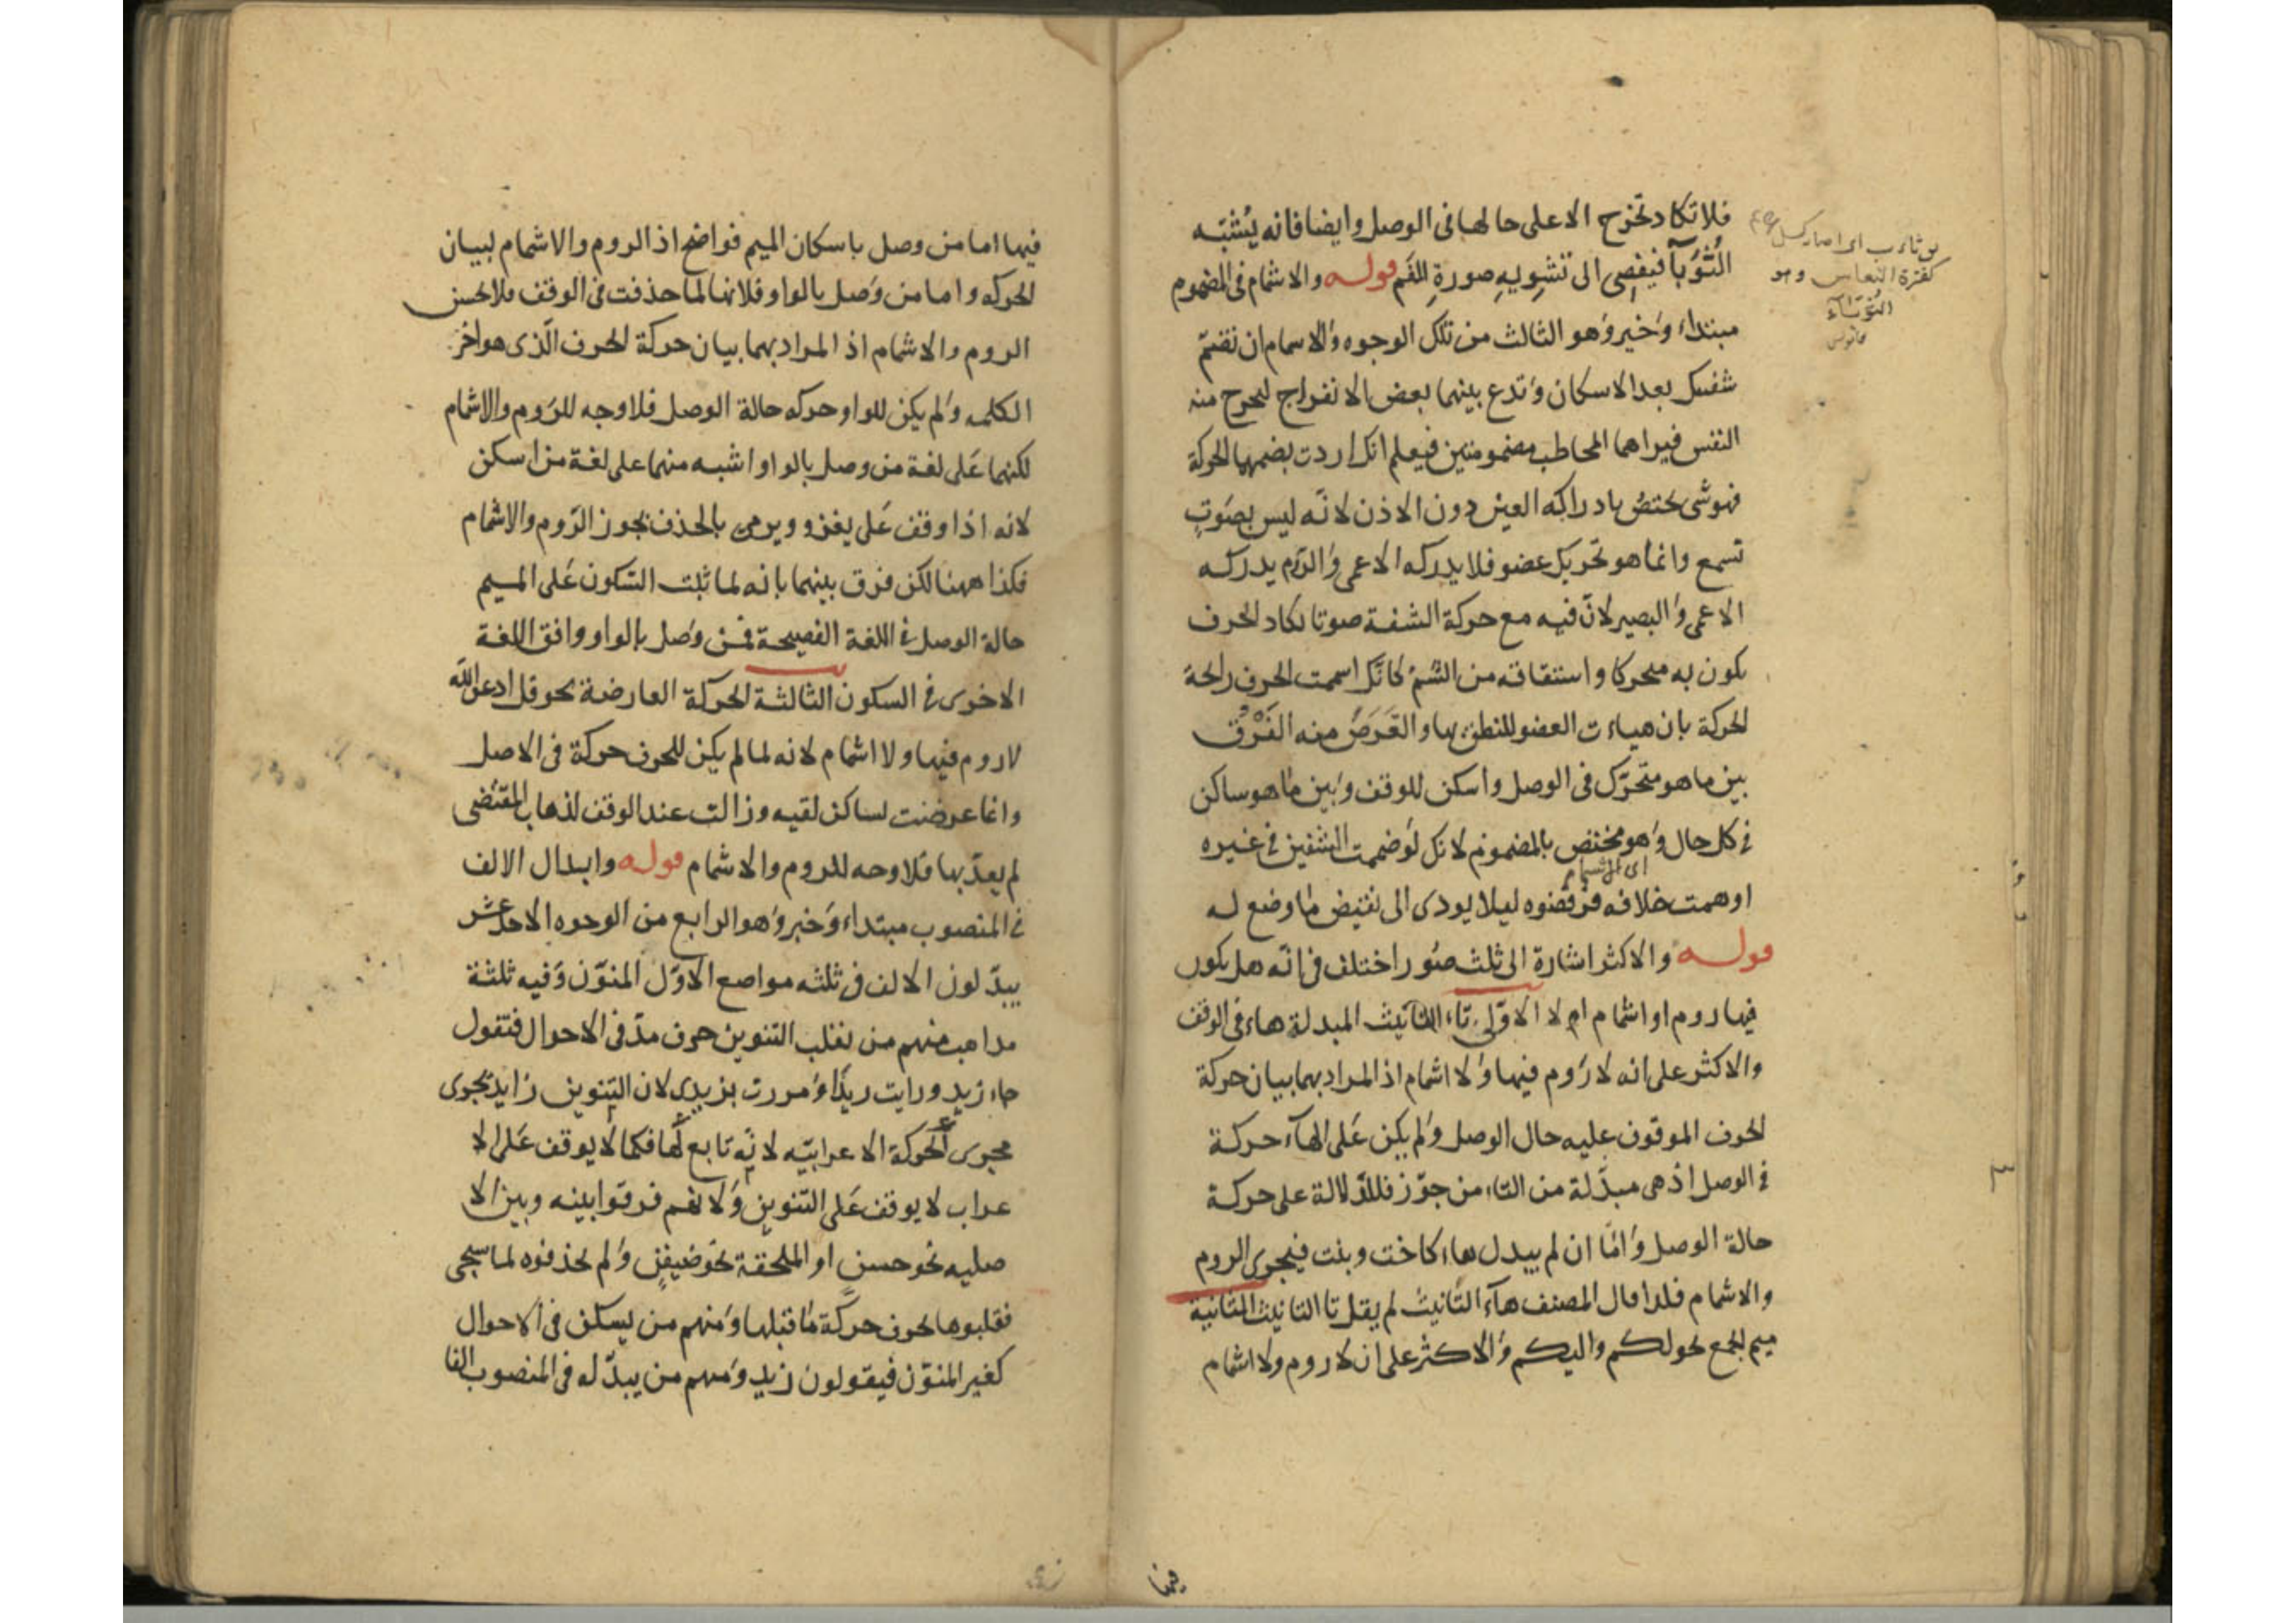 فلا تكاد تخرج الا على حالها فى الوصل وايضا فانه يُشبّه
الثُّوَبَآ فيفضِى الى تشوِيهِ صورةِ الفَم قوله والاشمام فى المضموم
مبتداء وَخبر وَهو الثالث من تلك الوجوه وَالاسمام ان تضمّ
شفتيك بعد الاسكان وَتدع بينهما بعض الانفراج ليحرج منه
النفس فيراهما المخاطب مضمومتين فيعلم انك اردت بضمهما الحركة
فهو شى يختصّ بادراكه العين دون الاذن لانّه ليس بصَوتٍ
تسمع وانما هو تحريك عضو فلا يدركه الاعمى وَالرّوم يدركه
الاعمى وَالبصير لانّ فيه مع حركة الشفة صوتا يكاد الحرف
يكون به متحركا واشتقاقه من الشمّ كانّك اشممت الحرف رائحة
الحركة بان هيات العضو للنطق بها والغَرَضُ منه الفَرْقُ
بين ما هو متحرّك فى الوصل واسكن للوقف وَبين مَا هو ساكن
فى كل حال وَهو مختص بالمضموم لانك لوَ ضممت الشفتين فى غيره
اى الاشمام
اوهمت خلافه فرفضوه ليلا يودى الى نقيض مَا وضع له
قوله والاكثر اشارة الى ثلث صُور اختلف فى انّه هل يكون
فيها روم او اشمام ام لا الاوّلى تاء التانيث المبدلة هاء فى الوقف
والاكثر على انه لا رَوم فيها وَلا اشمام اذ المراد بهما بيان حركة
الحرف الموقوف عليه حال الوصل وَلم يكن عَلى الهآء حركة
فى الوصل اذ هى مبدّلة من التاء من جوّز فللدّلالة على حركة
حالة الوصل وَامّا ان لم يبدل هاء كاخت وبنت فيجرى الروم
والاشمام فلذا قال المصنف هآء التّانيث لم يقل تا التانيث الثانية
ميم الجمع نحو لكم واليكم وَالاكثر على ان لا روم ولا اشمام
فيها
كفترة النعاس وهو
الثُّوَبَآءُ
قاموس
فيها اما من وصل باسكان الميم فواضح اذ الروم والاشمام لبيان
الحركه واما من وَصل بالواو فلانها لما حذفت فى الوقف فلا يحسن
الروم والاشمام اذ المراد بهما بيان حركة الحرف الّذى هو اخر
الكلمه وَلم يكن للواو حركه حالة الوصل فلا وجه للرَوم والاشمام
لكنهما عَلى لغة من وصل بالواو اشبه منهما على لغة من اسكن
لانه اذا وقف عَلى يغزو ويرمى بالحذف يجوز الرّوم والاشمام
فكذا ههنا لكن فرق بينهما بانه لما ثبت السّكون عَلى الميم
حالة الوصل فى اللغة الفصيحة فمن وَصل بالواو وافق اللغة
الاخرى فى السكون الثالثة الحركة العارضة نحو قل ادعو الله
لا روم فيها ولا اشمام لانه لما لم يكن للحرف حركة فى الاصل
وانما عرضت لساكن لقيه وزالت عند الوقف لذهاب المقتضى
لم يعدّ بها فلا وجه للروم والاشمام قوله وابدال الالف
فى المنصوب مبتداء وَخبر وَهو الرابع من الوجوه الاحد عشر
يبدّلون الالف فى ثلثه مواضع الاوّل المنوّن وَفيه ثلثة
مداهب منهم من يقلب التنوين حرف مدّ فى الاحوال فتقول
جاء زيدو ورايت زيدًا وَمررت بزيدى لان التنوين زايد تجرى
مجرى الحركة الاعرابيّه لانّه تابع لّها فكما لا يوقف عَلى الا
عراب لا يوقف عَلى التنوين وَلانهم فرقوا بينه وبين الا
صليه نحو حسن او الملحقة نحو ضيفنٍ وَلم يحذفوه لما سيجى
فقلبوها بحرف حركة مَا قبلها وَمنهم من يسكن فى الاحوال
كغير المنوّن فيقولون زيد وَمنهم من يبدّله فى المنصوب الفا